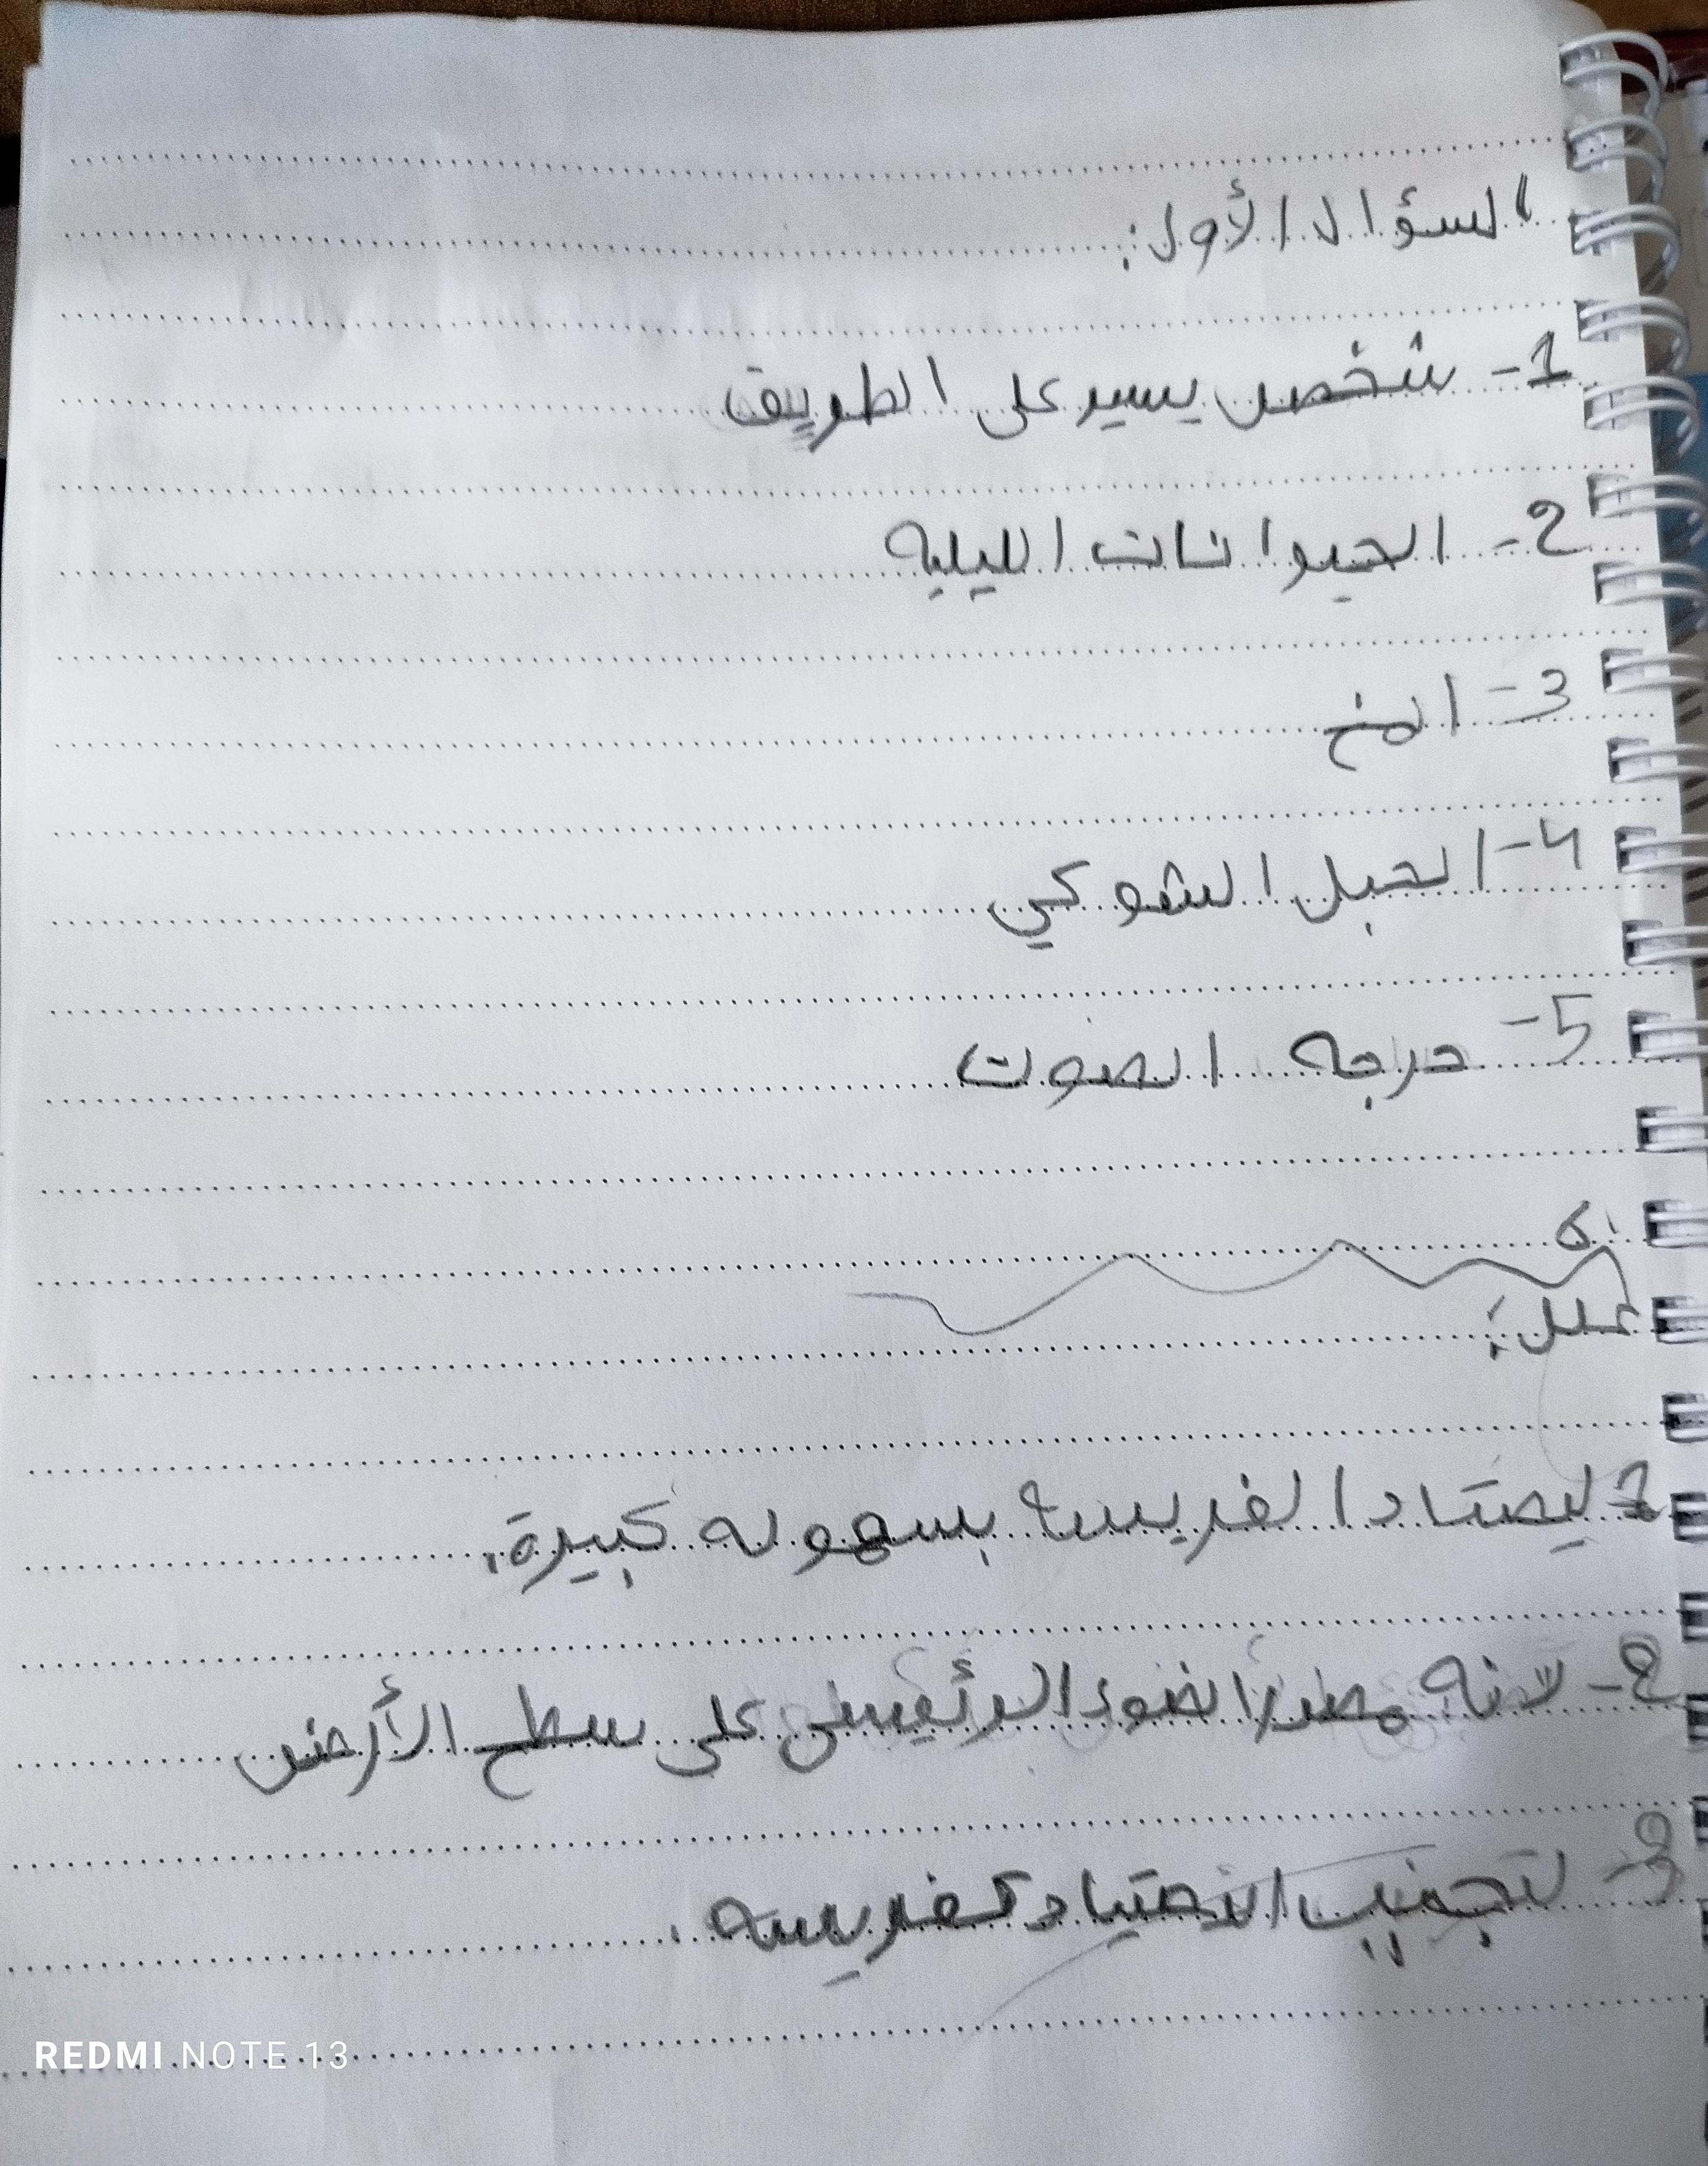 السؤال الأول:
1- شخص يسير على الطريق
2- الحيوانات الليليه
3- المخ
4- الحبل الشوكي
5- درجه الصوت
علل:
1- ليصتاد الفريسه بسهوله كبيرة.
2- لانه مصدر الضوء الرئيسي على سطح الأرض
3- لتجنب الاصتياد كفريسه.
REDMI NOTE 13